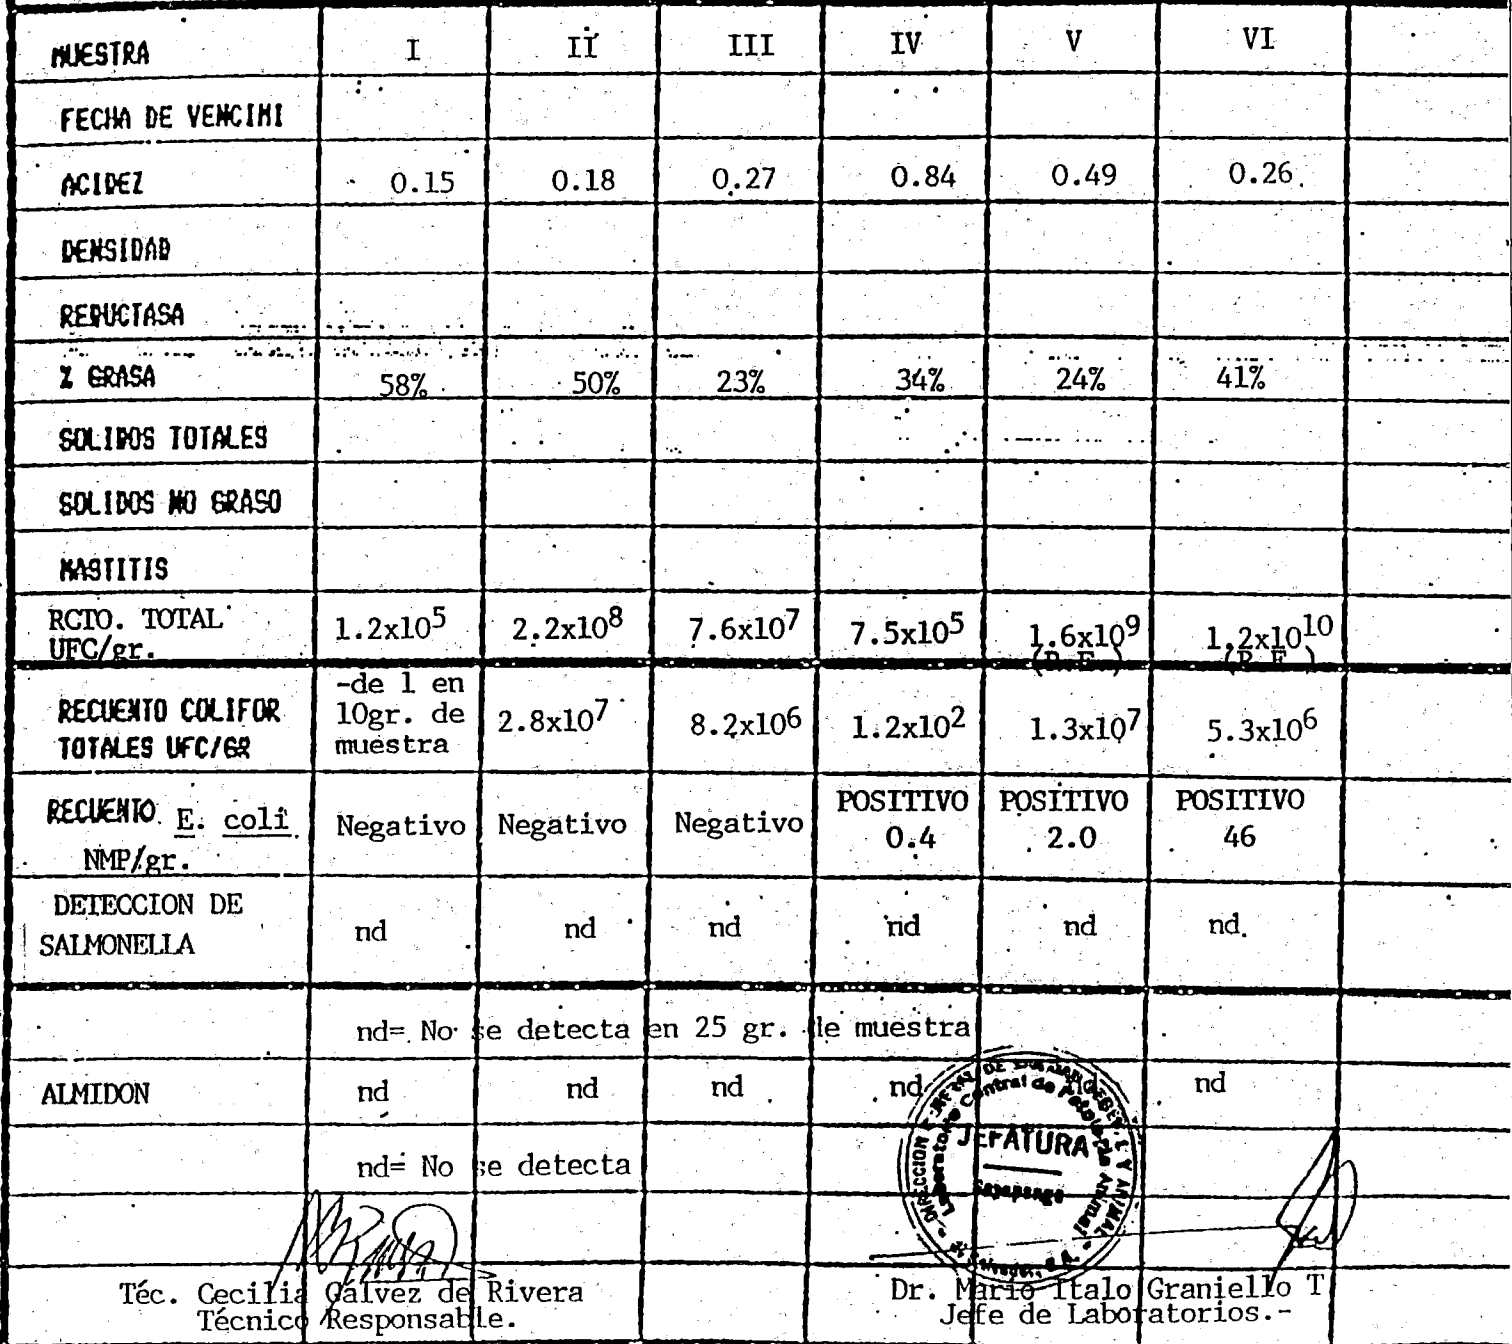 MUESTRA I II III IV V VI
FECHA DE VENCIMI
ACIDEZ 0.15 0.18 0.27 0.84 0.49 0.26
DENSIDAD
REDUCTASA
% GRASA 58% 50% 23% 34% 24% 41%
SOLIDOS TOTALES
SOLIDOS NO GRASO
MASTITIS
RCTO. TOTAL
UFC/gr. 1.2x10⁵ 2.2x10⁸ 7.6x10⁷ 7.5x10⁵ 1.6x10⁹ 1.2x10¹⁰
RECUENTO COLIFOR
TOTALES UFC/GR
-de 1 en
10gr. de
muestra
2.8x10⁷ 8.2x10⁶ 1.2x10² 1.3x10⁷ 5.3x10⁶
RECUENTO E. coli
NMP/gr.
Negativo Negativo Negativo POSITIVO POSITIVO POSITIVO
0.4 2.0 46
DETECCION DE
SALMONELLA nd nd nd nd nd nd.
nd= No se detecta en 25 gr. de muestra
ALMIDON nd nd nd nd nd
nd= No se detecta
JEFATURA
Laboratorio Central de
Téc. Cecilia Gálvez de Rivera
Técnico Responsable.
Dr. Mario Italo Graniello T
Jefe de Laboratorios.-